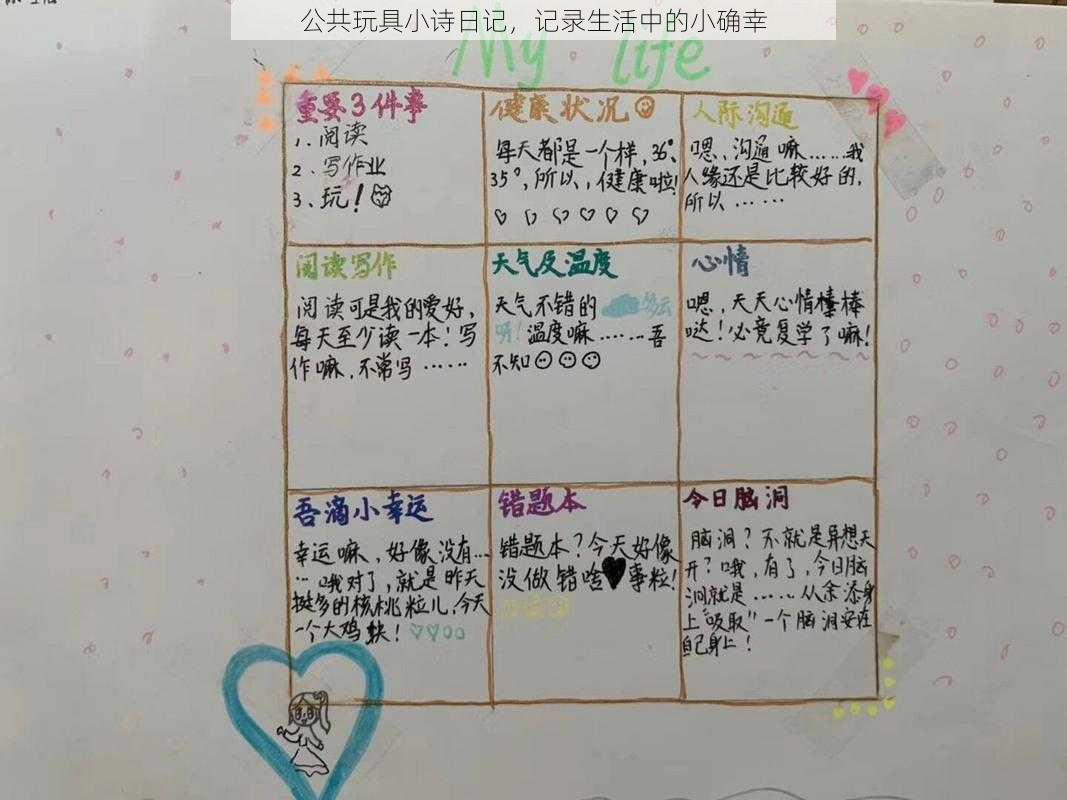 公共玩具小诗日记，记录生活中的小确幸
My life
重要3件事
1、阅读
2、写作业
3、玩！
健康状况
每天都是一个样，36°、
35°，所以，健康啦！
人际沟通
嗯、沟通嘛……我
人缘还是比较好的，
所以……
阅读写作
阅读可是我的爱好，
每天至少读一本！写
作嘛，不常写……
天气及温度
天气不错的 多云
呀！温度嘛……吾
不知
心情
嗯，天天心情棒棒
哒！必竟复学了嘛！
吾滴小幸运
幸运嘛、好像没有…
…哦对了，就是昨天
挺多的核桃粒儿，今天
一个大鸡块！
错题本
错题本？今天好像
没做错啥事粒！
今日脑洞
脑洞？不就是异想天
开？哦，有了，今日脑
洞就是……从余添身
上“吸取”一个脑洞安在
自己身上！